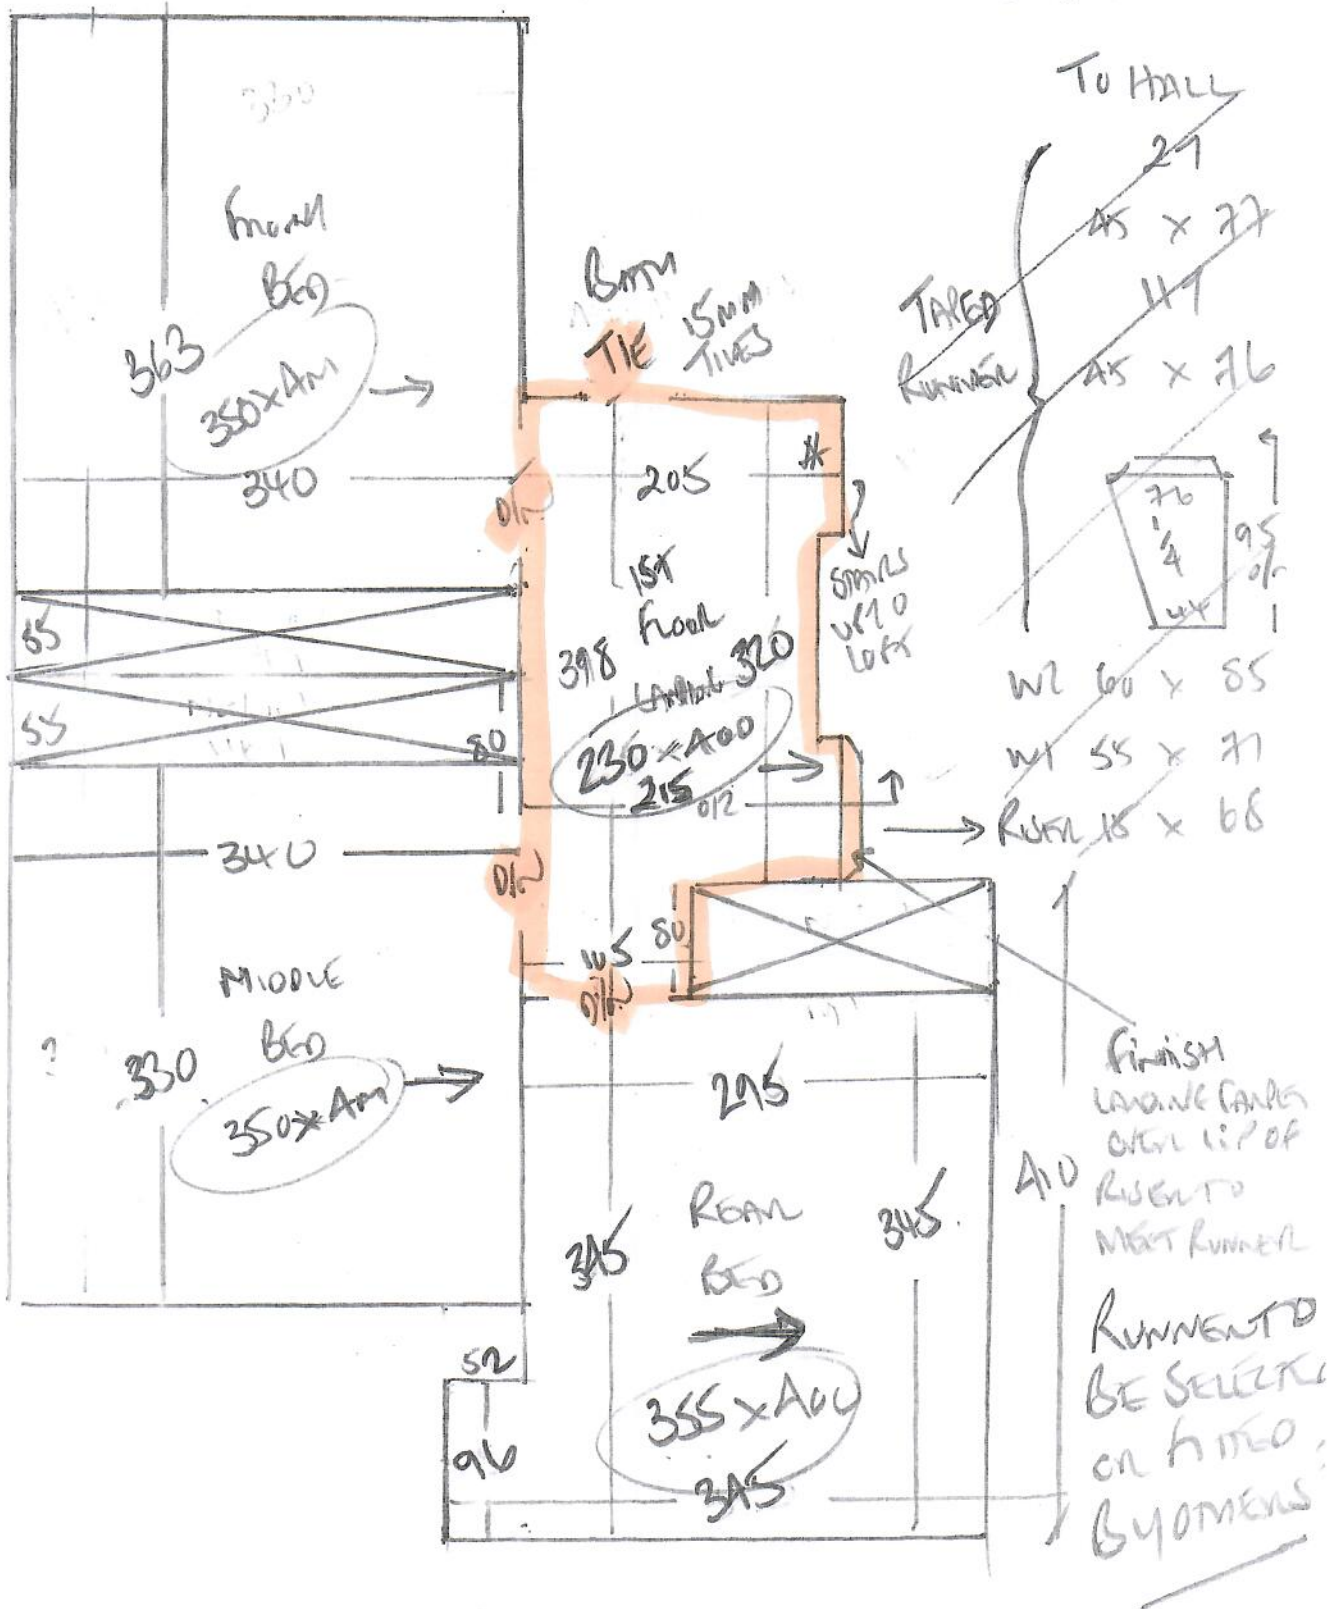 FRONT
BED
363
350 x 4M
340
55
55
80
340
MIDDLE
BED
330
350 x 4M
BATH
TIE
15MM
TILES
205
D/N
1ST
FLOOR
LANDING
398
320
230 x 400
215
STAIRS
UP TO
LOFT
D/N
105
80
D/N
295
REAR
BED
345
345
410
355 x 400
345
52
96
TO HALL
45 x 77
TAPED
RUNNER
45 x 76
76
1/4
44
95
W2 60 x 85
W1 55 x 77
RISER 18 x 68
FINISH
LANDING CARPET
OVER LIP OF
RISER TO
MEET RUNNER
RUNNER TO
BE SELECTED
OR FITTED
BY OTHERS